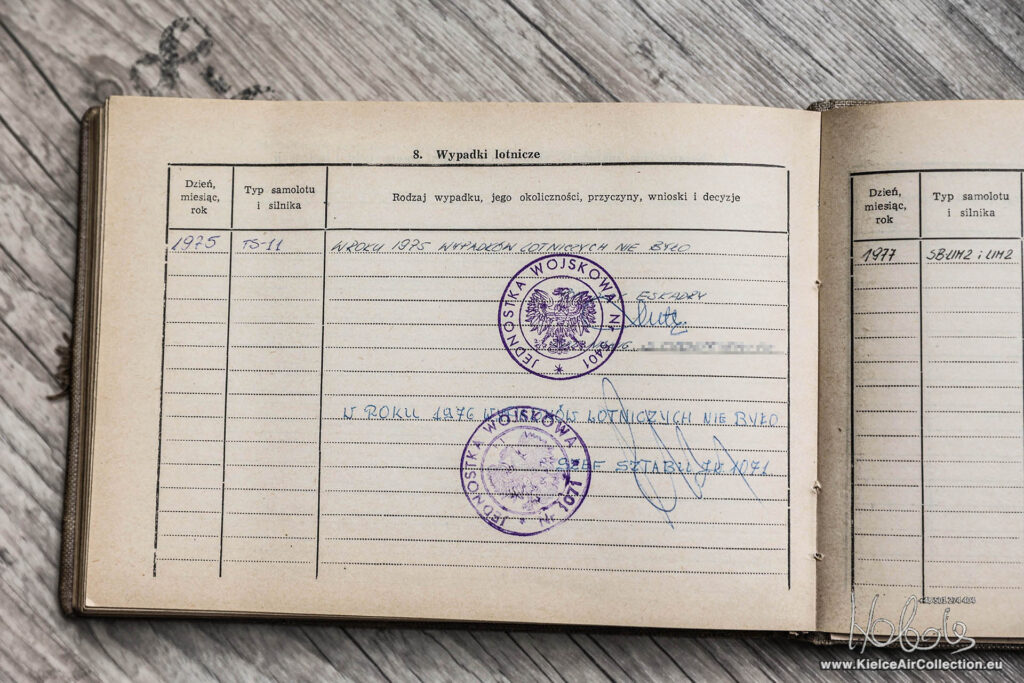 8. Wypadki lotnicze
Dzień, miesiąc, rok
Typ samolotu i silnika
Rodzaj wypadku, jego okoliczności, przyczyny, wnioski i decyzje
1975 TS-11 W ROKU 1975 WYPADKÓW LOTNICZYCH NIE BYŁO
JEDNOSTKA WOJSKOWA Nr 3401
ESKADRY
W ROKU 1976 WYPADKÓW LOTNICZYCH NIE BYŁO
JEDNOSTKA WOJSKOWA Nr 1071
SZEF SZTABU JW 1071
Dzień, miesiąc, rok
Typ samolotu i silnika
1977 SBLIM2 i LIM2
www.KielceAirCollection.eu